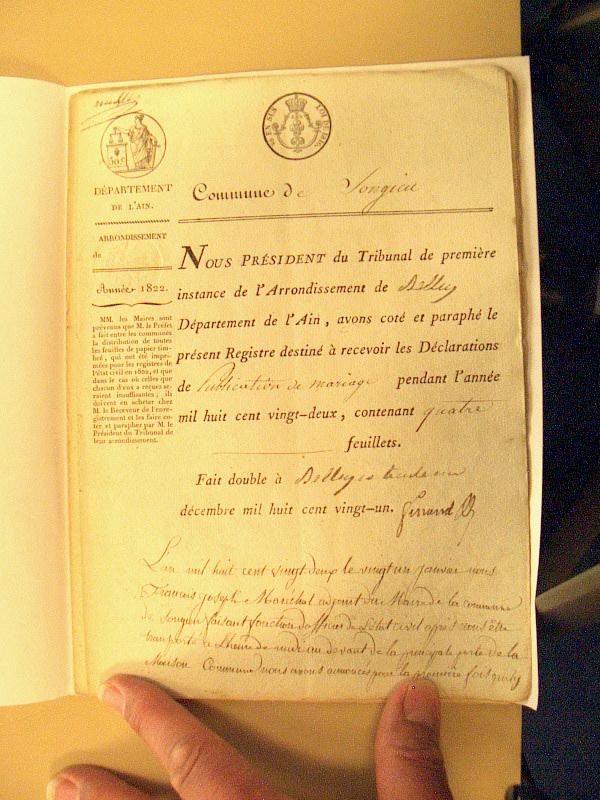 DÉPARTEMENT
DE L'AIN.
ARRONDISSEMENT
de
Année 1822.
MM. les Maires sont
prévenus que M. le Préfet
a fait entre les communes
la distribution de toutes
les feuilles de papier tim-
bré, qui ont été impri-
mées pour les registres de
l'état civil en 1822, et que
dans le cas où celles que
chacun d'eux a reçues se-
raient insuffisantes, ils
doivent en acheter chez
M. le Receveur de l'enre-
gistrement et les faire co-
ter et parapher par M. le
Président du Tribunal de
leur arrondissement.
Commune de Songieu
NOUS PRÉSIDENT du Tribunal de première
instance de l'Arrondissement de Belley
Département de l'Ain, avons coté et paraphé le
présent Registre destiné à recevoir les Déclarations
de Publication de mariage pendant l'année
mil huit cent vingt-deux, contenant quatre
feuillets.
Fait double à Belley le trente un
décembre mil huit cent vingt-un.
L'an mil huit cent vingt deux le vingt un janvier nous
François Joseph Maréchal adjoint du Maire de la commune
de Songieu faisant fonction d'officier de l'état civil après nous être
transporté à l'heure de midi au devant de la principale porte de la
Maison Commune nous avons annoncés pour la première fois